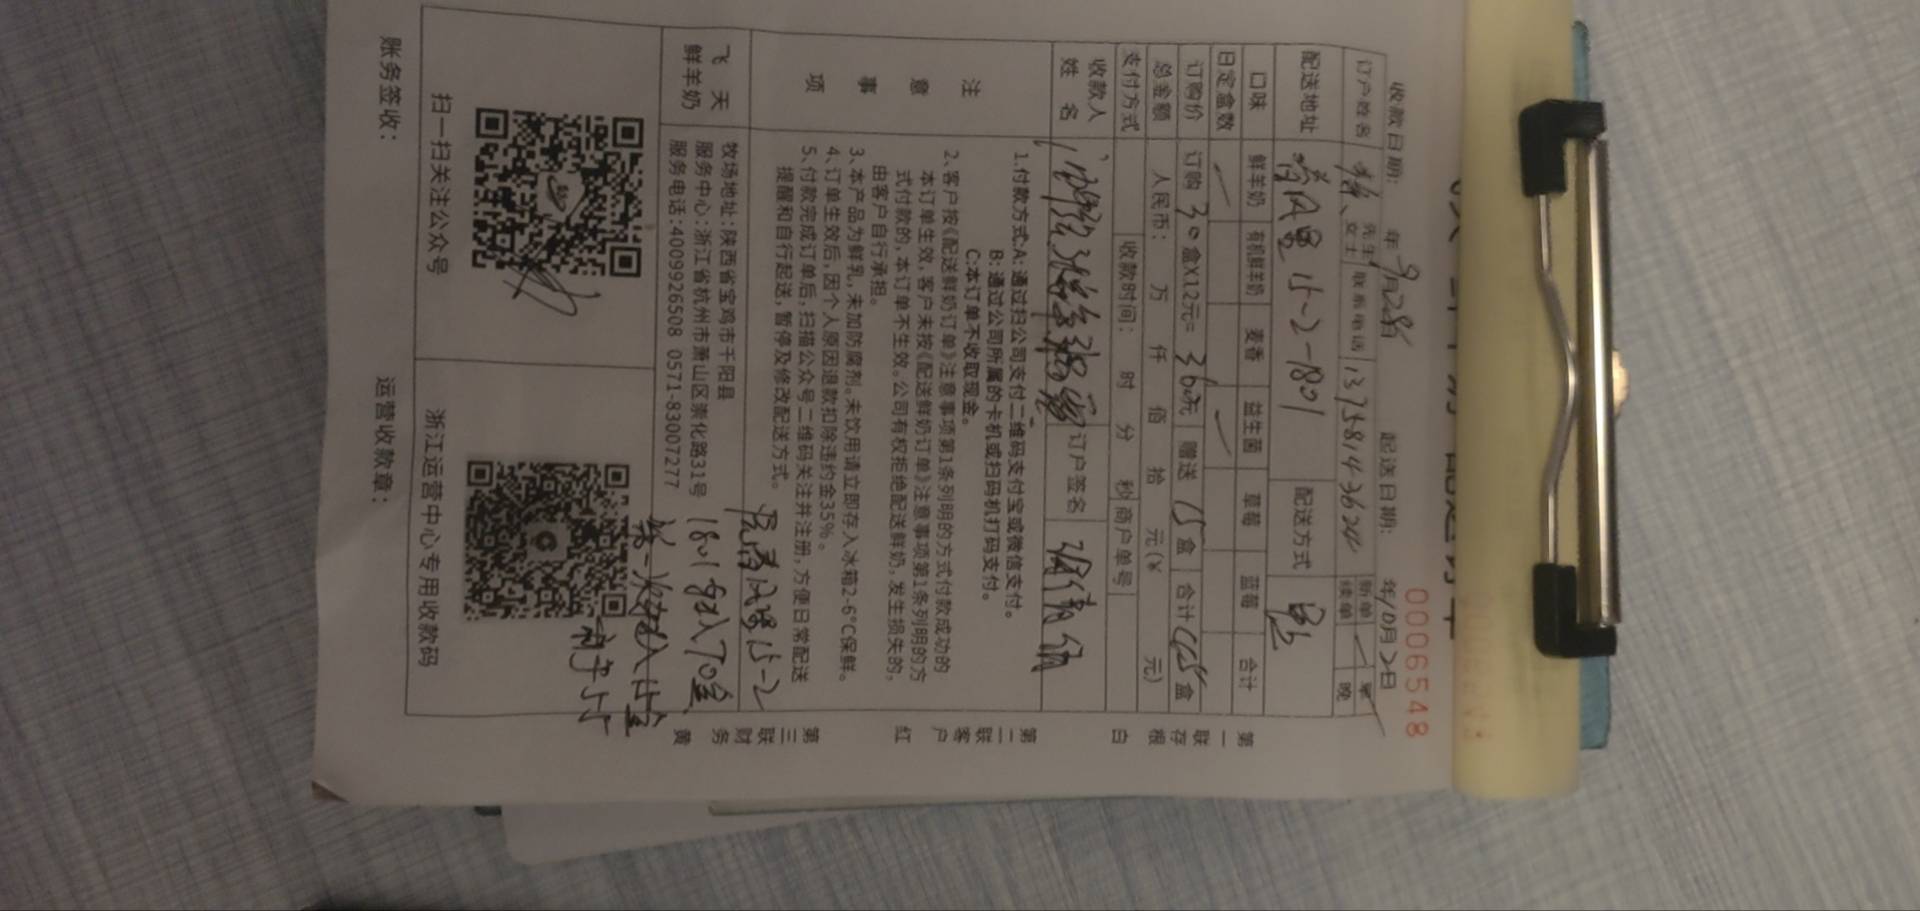 0006548
收款日期: 年9月28日 起送日期: 年10月2日
订户姓名 先生 女士 联系电话 13758143624 新单 续单 早 晚
配送地址 15-2-1801 配送方式
口味 鲜羊奶 有机鲜羊奶 麦香 益生菌 草莓 蓝莓 合计
日定盒数
订购价 订购 30 盒X12元= 360元 赠送 15 盒 合计 盒
总金额 人民币: 万 仟 佰 拾 元(¥ 元)
支付方式 收款时间: 时 分 秒 商户单号
收款人姓名 订户签名
注意事项
1.付款方式:A: 通过扫公司支付二维码支付宝或微信支付。
B: 通过公司所属的卡机或扫码机打码支付。
C:本订单不收取现金。
2、客户按《配送鲜奶订单》注意事项第1条列明的方式付款成功的
本订单生效,客户未按《配送鲜奶订单》注意事项第1条列明的方
式付款的,本订单不生效。公司有权拒绝配送鲜奶,发生损失的,
由客户自行承担。
3、本产品为鲜乳,未加防腐剂。未饮用请立即存入冰箱2-6°C保鲜。
4、订单生效后,因个人原因退款扣除违约金35%。
5、付款完成订单后,扫描公众号二维码关注并注册,方便日常配送
提醒和自行起送,暂停及修改配送方式。
飞天鲜羊奶
牧场地址:陕西省宝鸡市千阳县
服务中心:浙江省杭州市萧山区崇化路31号
服务电话:4009926508 0571-83007277
15-2
1801 70盒
扫一扫关注公众号
浙江运营中心专用收款码
账务签收: 运营收款章:
第一联存根 白
第二联客户 红
第三联财务 黄